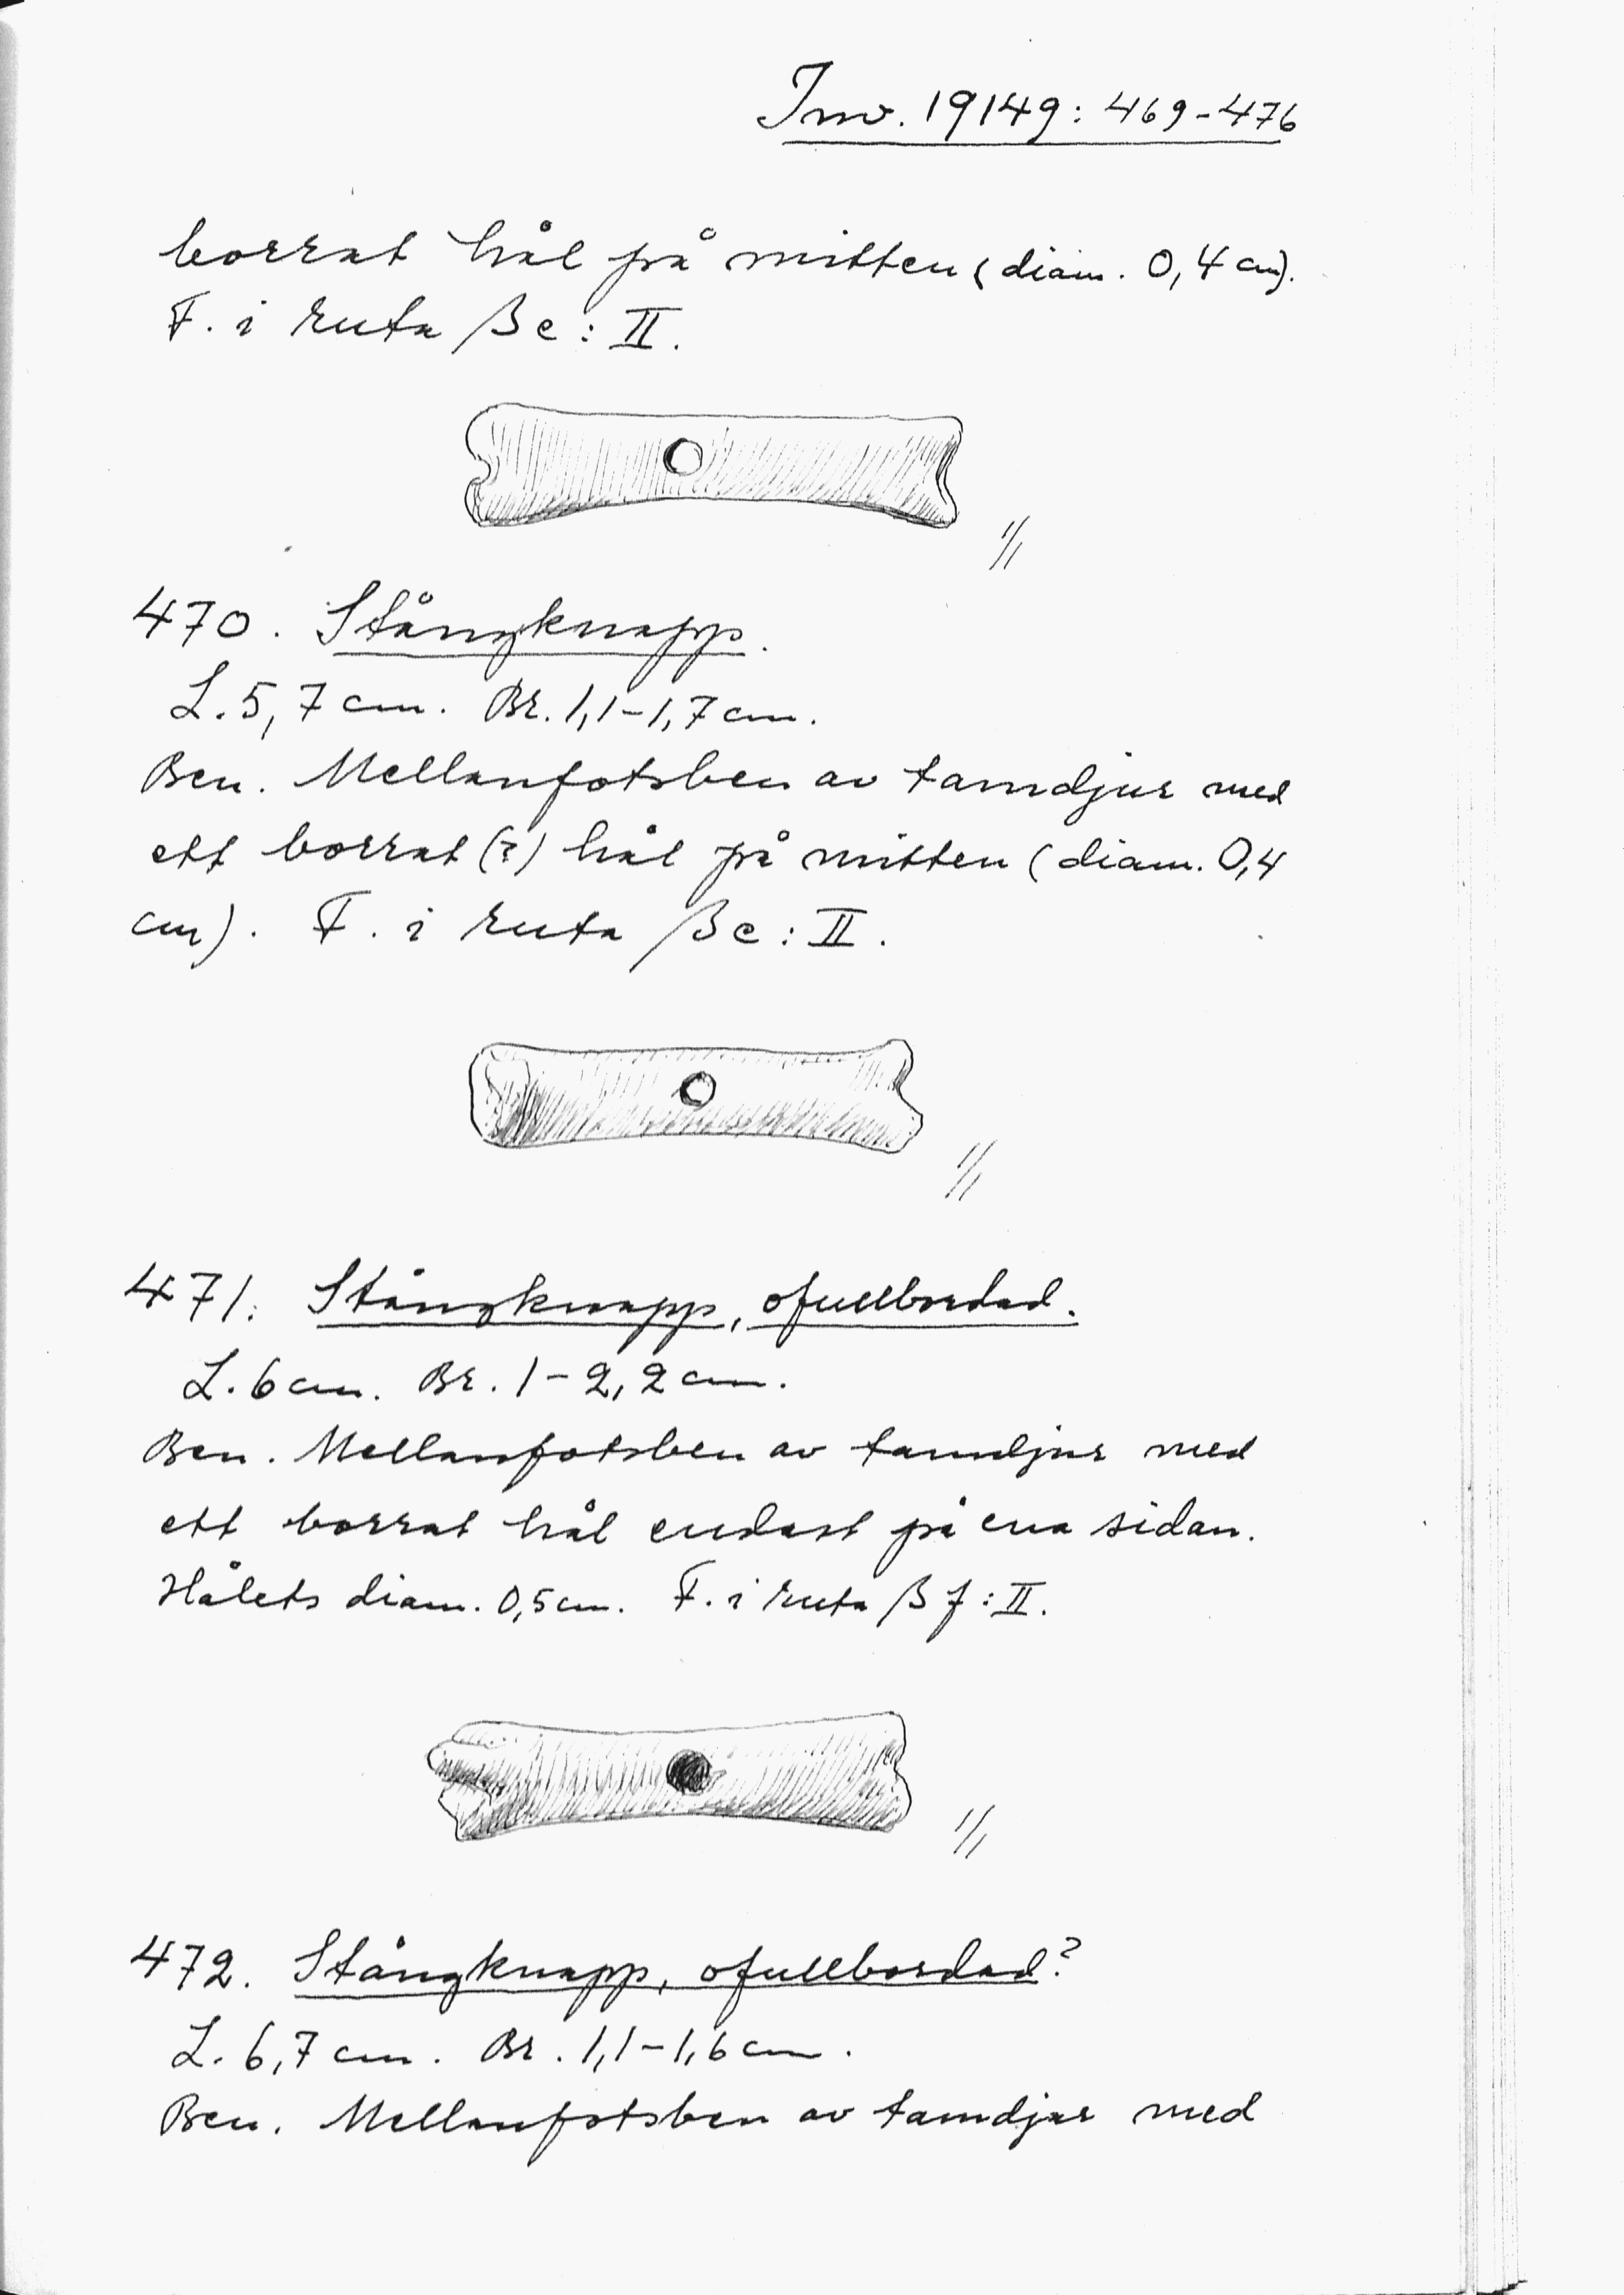 Inv. 19149: 469-476
borrat hål på mitten (diam. 0,4 cm).
F. i ruta βe: II.
1/1
470. Stångknapp.
L. 5,7 cm. Br. 1,1-1,7 cm.
Ben. Mellanfotsben av tamdjur med
ett borrat (?) hål på mitten (diam. 0,4
cm). F. i ruta βe: II.
1/1
471. Stångknapp, ofullbordad.
L. 6 cm. Br. 1-2,2 cm.
Ben. Mellanfotsben av tamdjur med
ett borrat hål endast på ena sidan.
Hålets diam. 0,5 cm. F. i ruta βf: II.
1/1
472. Stångknapp, ofullbordad?
L. 6,7 cm. Br. 1,1-1,6 cm.
Ben. Mellanfotsben av tamdjur med